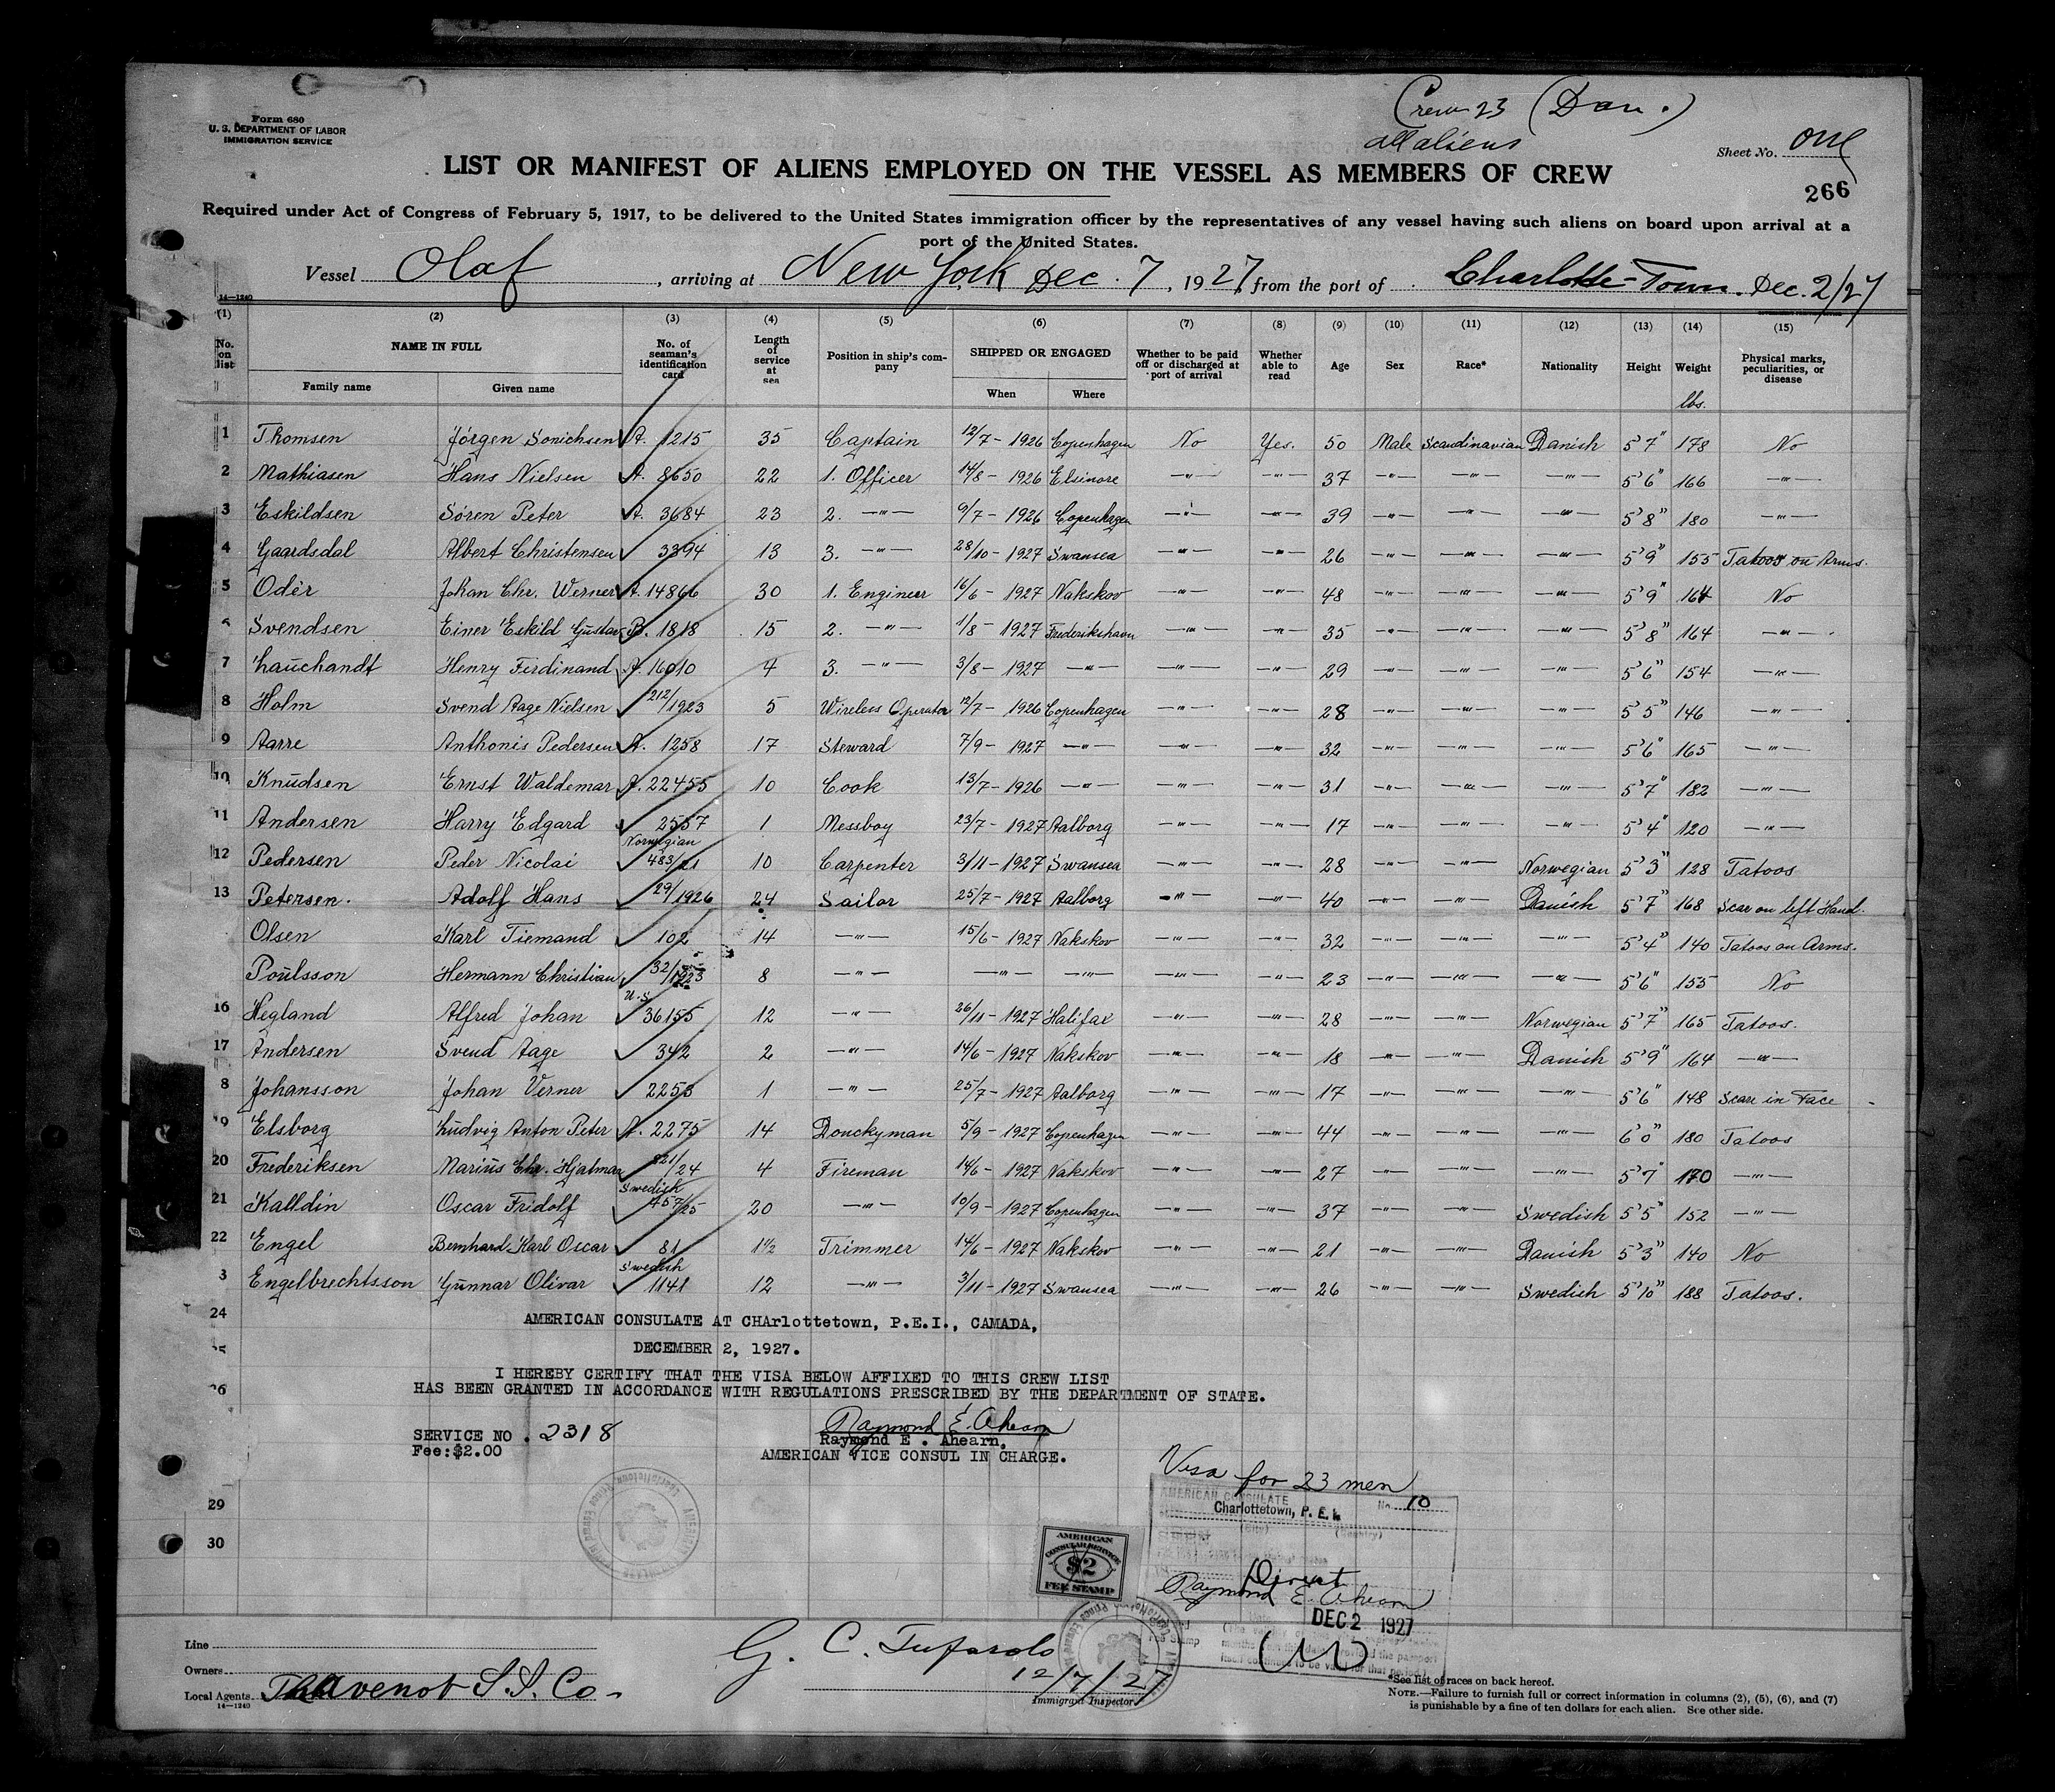 Crew 23 (Dan.)
all aliens
Form 680
U. S. DEPARTMENT OF LABOR
IMMIGRATION SERVICE
Sheet No. one
266
LIST OR MANIFEST OF ALIENS EMPLOYED ON THE VESSEL AS MEMBERS OF CREW
Required under Act of Congress of February 5, 1917, to be delivered to the United States immigration officer by the representatives of any vessel having such aliens on board upon arrival at a
port of the United States.
Vessel Olaf, arriving at New York Dec. 7, 1927, from the port of Charlotte-Town. Dec. 2/27
14—1240
(1) (2) (3) (4) (5) (6) (7) (8) (9) (10) (11) (12) (13) (14) (15)
No. on list NAME IN FULL Family name Given name No. of seaman's identification card Length of service at sea Position in ship's company SHIPPED OR ENGAGED When Where Whether to be paid off or discharged at port of arrival Whether able to read Age Sex Race* Nationality Height Weight lbs. Physical marks, peculiarities, or disease
1 Thomsen Jörgen Sonichsen A. 1215 35 Captain 12/7 - 1926 Copenhagen No Yes. 50 Male Scandinavian Danish 5'7" 178 No
2 Mathiasen Hans Nielsen A. 8650 22 1. Officer 14/8 - 1926 Elsinore —"— —"— 37 —"— —"— —"— 5'6" 166 —"—
3 Eskildsen Sören Peter A. 3684 23 2. —"— 9/7 - 1926 Copenhagen —"— —"— 39 —"— —"— —"— 5'8" 180 —"—
4 Gaardsdal Albert Christensen 3394 13 3. —"— 28/10 - 1927 Swansea —"— —"— 26 —"— —"— —"— 5'9" 155 Tatoos on Arms.
5 Odér Johan Chr. Werner A. 14866 30 1. Engineer 16/6 - 1927 Nakskov —"— —"— 48 —"— —"— —"— 5'9" 164 No
Svendsen Einer Eskild Gustav B. 1818 15 2. —"— 1/8 - 1927 Frederikshavn —"— —"— 35 —"— —"— —"— 5'8" 164 —"—
7 Lauchandt Henry Ferdinand A. 16010 4 3. —"— 3/8 - 1927 —"— —"— —"— 29 —"— —"— —"— 5'6" 154 —"—
8 Holm Svend Aage Nielsen 212/1923 5 Wireless Operator 12/7 - 1926 Copenhagen —"— —"— 28 —"— —"— —"— 5'5" 146 —"—
9 Aarre Anthonis Pedersen A. 1258 17 Steward 7/9 - 1927 —"— —"— —"— 32 —"— —"— —"— 5'6" 165 —"—
10 Knudsen Ernst Waldemar A. 22455 10 Cook 13/7 - 1926 —"— —"— —"— 31 —"— —"— —"— 5'7" 182 —"—
11 Andersen Harry Edgard 2557 1 Messboy 23/7 - 1927 Aalborg —"— —"— 17 —"— —"— —"— 5'4" 120 —"—
12 Pedersen Peder Nicolai Norwegian 483/21 10 Carpenter 3/11 - 1927 Swansea —"— —"— 28 —"— —"— Norwegian 5'3" 128 Tatoos
13 Petersen. Adolf Hans 29/1926 24 Sailor 25/7 - 1927 Aalborg —"— —"— 40 —"— —"— Danish 5'7" 168 Scar on left Hand.
Olsen Karl Tiemand 102 14 —"— 15/6 - 1927 Nakskov —"— —"— 32 —"— —"— —"— 5'4" 140 Tatoos on Arms.
Poulsson Hermann Christian 32/1923 8 —"— —"— —"— —"— —"— 23 —"— —"— —"— 5'6" 155 No
16 Hegland Alfred Johan U.S. 36155 12 —"— 26/11 - 1927 Halifax —"— —"— 28 —"— —"— Norwegian 5'7" 165 Tatoos.
17 Andersen Svend Aage 342 2 —"— 14/6 - 1927 Nakskov —"— —"— 18 —"— —"— Danish 5'9" 164 —"—
8 Johansson Johan Verner 2253 1 —"— 25/7 - 1927 Aalborg —"— —"— 17 —"— —"— —"— 5'6" 148 Scare in Face
9 Elsborg Ludvig Anton Peter A. 2275 14 Donckyman 5/9 - 1927 Copenhagen —"— —"— 44 —"— —"— —"— 6'0" 180 Tatoos
20 Frederiksen Marius Chr. Hjalmar 821/24 4 Fireman 14/6 - 1927 Nakskov —"— —"— 27 —"— —"— —"— 5'7" 170 —"—
21 Kalldin Oscar Fridolf Swedish 457/25 20 —"— 10/9 - 1927 Copenhagen —"— —"— 37 —"— —"— Swedish 5'5" 152 —"—
22 Engel Bernhard Karl Oscar 81 1½ Trimmer 14/6 - 1927 Nakskov —"— —"— 21 —"— —"— Danish 5'3" 140 No
3 Engelbrechtsson Gunnar Olivar Swedish 1141 12 —"— 3/11 - 1927 Swansea —"— —"— 26 —"— —"— Swedish 5'10" 188 Tatoos.
24
AMERICAN CONSULATE AT CHArlottetown, P.E.I., CAMADA,
DECEMBER 2, 1927.
I HEREBY CERTIFY THAT THE VISA BELOW AFFIXED TO THIS CREW LIST
HAS BEEN GRANTED IN ACCORDANCE WITH REGULATIONS PRESCRIBED BY THE DEPARTMENT OF STATE.
SERVICE NO. 2318
Fee:$2.00
Raymond E. Ahearn
Raymond E. Ahearn.
AMERICAN VICE CONSUL IN CHARGE.
Visa for 23 men
AMERICAN CONSULATE
No. 10
Charlottetown, P. E. I.
29
30
AMERICAN
CONSULAR SERVICE
$2
FEE STAMP
Direct
Raymond E. Ahearn
DEC 2 1927
Line
Owners
Local Agents Thavenot S.S. Co.
14—1240
G. C. Tufarolo
12/7/27
Immigrant Inspector
*See list of races on back hereof.
NOTE.—Failure to furnish full or correct information in columns (2), (5), (6), and (7)
is punishable by a fine of ten dollars for each alien. See other side.